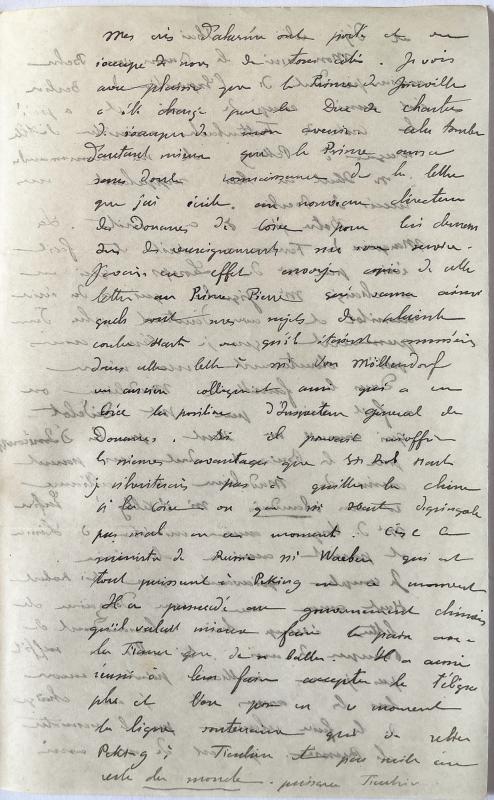 Mes cris d'alarme ont porté et on
s'occupe de nous de tous côtés. Je vois
avec plaisir que le Prince de Joinville
a été chargé par le Duc de Chartres
de s'occuper de mon cela tombe
d'autant mieux que le Prince aura
sans doute connaissance de la lettre
que j'ai écrite au nouveau directeur
des Douanes de Corée pour lui donner
des renseignements sur son service.
J'avais en effet envoyé copie de cette
lettre au Prince Pierre
quels mes sujets de plainte
contre Hart
dans cette lettre à Mr Von Möllendorf
un ancien collègue et ami qui a en
Corée la position d'Inspecteur général des
Douanes. Si il pouvait m'offrir
les mêmes avantages que Sir Rob Hart
je n'hésiterais pas à quitter la Chine
la Corée
pas mal en ce moment. C'est le
ministre de Russie Mr Waeber qui est
tout puissant à Peking en ce moment
Il a persuadé au gouvernement chinois
qu'il valait mieux faire la paix avec
la France que de se battre. Il a aussi
réussi à leur faire accepter le télégraphe
et l'on pose en ce moment
la ligne souterraine qui va relier
Peking à Tientsin et par suite au
reste du monde. puisque Tientsin